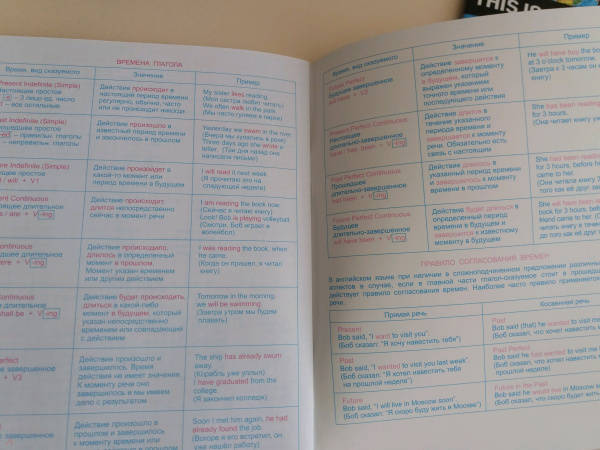 THIS IS
ВРЕМЕНА ГЛАГОЛА
Время, вид сказуемого
Значение
Пример
Present Indefinite (Simple)
Настоящее простое
– 3 лицо ед. число
– все остальные
Действие происходит в
настоящий период времени
регулярно, обычно, часто
или не происходит никогда
My sister likes reading.
(Моя сестра любит читать)
We often walk in the park.
(Мы часто гуляем в парке)
Indefinite (Simple)
простое
– правильн. глаголы
– неправильн. глаголы
Действие произошло в
известный период времени
и закончилось в прошлом
Yesterday we swam in the river.
(Вчера мы купались в реке)
Three days ago she wrote a
letter. (Три дня назад она
написала письмо)
Indefinite (Simple)
простое
/ will + V1
Действие произойдет в
какой-то момент или
период времени в будущем
I will read it next week.
(Я прочитаю его на
следующей неделе)
Continuous
длительное
is / are + V-ing
Действие происходит,
длится непосредственно
сейчас в момент речи
I am reading the book now.
(Сейчас я читаю книгу)
Look! Bob is playing volleyball.
(Смотри, Боб играет в
волейбол)
Continuous
длительное
were + V-ing
Действие происходило,
длилось в определенный
момент в прошлом.
Момент указан временем
или другим действием
I was reading the book, when
he came.
(Когда он пришел, я читал
книгу)
Continuous
длительное
shall be + V-ing
Действие будет происходить,
длиться в какой-либо
момент в будущем, который
указан непосредственно
временем или совпадающей
с действием
Tomorrow in the morning,
we will be swimming.
(Завтра утром мы будем
плавать)
Perfect
завершенное
+ V3
Действие произошло и
завершилось. Время
действия не имеет значения.
К моменту речи оно
завершилось и мы имеем
дело с результатом
The ship has already swum
away.
(Корабль уже уплыл)
I have graduated from the
college.
(Я закончил колледж)
завершенное
Действие произошло в
прошлом и завершилось
к моменту времени или
Soon I met him again, he had
already found the job.
(Вскоре я его встретил, он
уже нашёл работу)
Время, вид сказуемого
Значение
Пример
Future Perfect
Будущее завершенное
will have + V3
Действие завершится в
определенный момент
в будущем, который
выражен указанием
точного времени или
последующего действия
He will have buy the book
at 3 o'clock tomorrow.
(Завтра к 3 часам он
книгу)
Present Perfect Continuous
Настоящее
длительно-завершенное
have / has been + V-ing
Действие длится в
течение указанного
периода времени и
завершается к моменту
речи. Обязательно есть
связь с настоящим
She has been reading
for 3 hours.
(Она читает книгу уже
Past Perfect Continuous
Прошедшее
длительно-завершенное
had been + V-ing
Действие длилось в
указанный период времени
и завершилось к моменту
времени в прошлом
She had been reading
for 3 hours, before he
came to her.
(Она читала книгу
того как ей
Future Perfect Continuous
Будущее
длительно-завершенное
will have been + V-ing
Действие будет длиться в
определенный период
времени в будущем и
завершится к известному
моменту в будущем
She will have been
book for 3 hours, before
friend came to her.
(Она будет читать
книгу в течение
до того как
ПРАВИЛО СОГЛАСОВАНИЯ ВРЕМЕН
В английском языке при наличии в сложноподчиненном предложении различных
Прямая речь
Косвенная речь
Present
Bob said, "I want to visit you".
(Боб сказал: "Я хочу навестить тебя")
Past
Bob said (that) he wanted to visit me
(Боб сказал, что хочет навестить
Past
Bob said, "I wanted to visit you last week".
(Боб сказал: "Я хотел навестить тебя
на прошлой неделе")
Past Perfect
Bob said he had wanted to visit me
(Боб сказал, что хотел навестить
неделе)
Future
Bob said, "I will live in Moscow soon".
(Боб сказал: "Я скоро буду жить в Москве")
Future in the Past
Bob said he would live in Moscow
(Боб сказал, что скоро будет жить